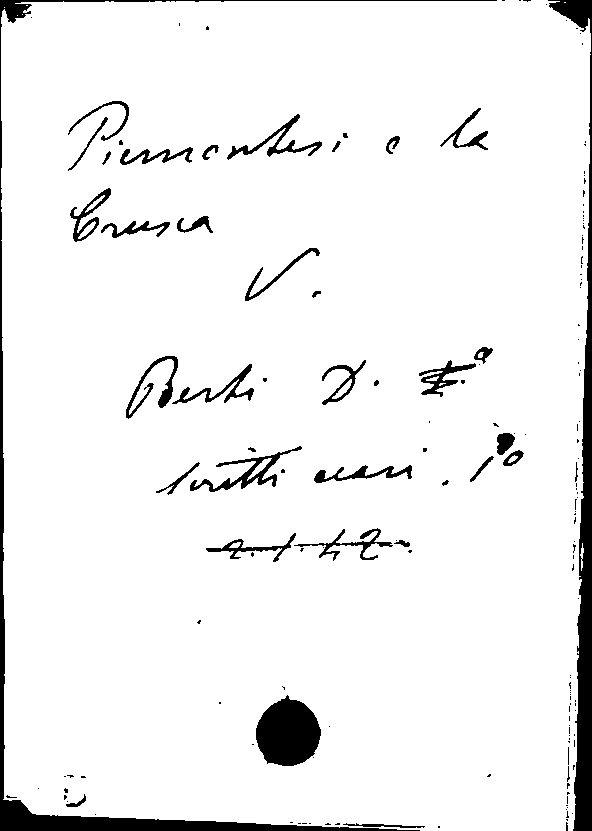 Piemontesi e la
Crusca
V.
Berti D.
Scritti vari. 1º
2. 1. 42.